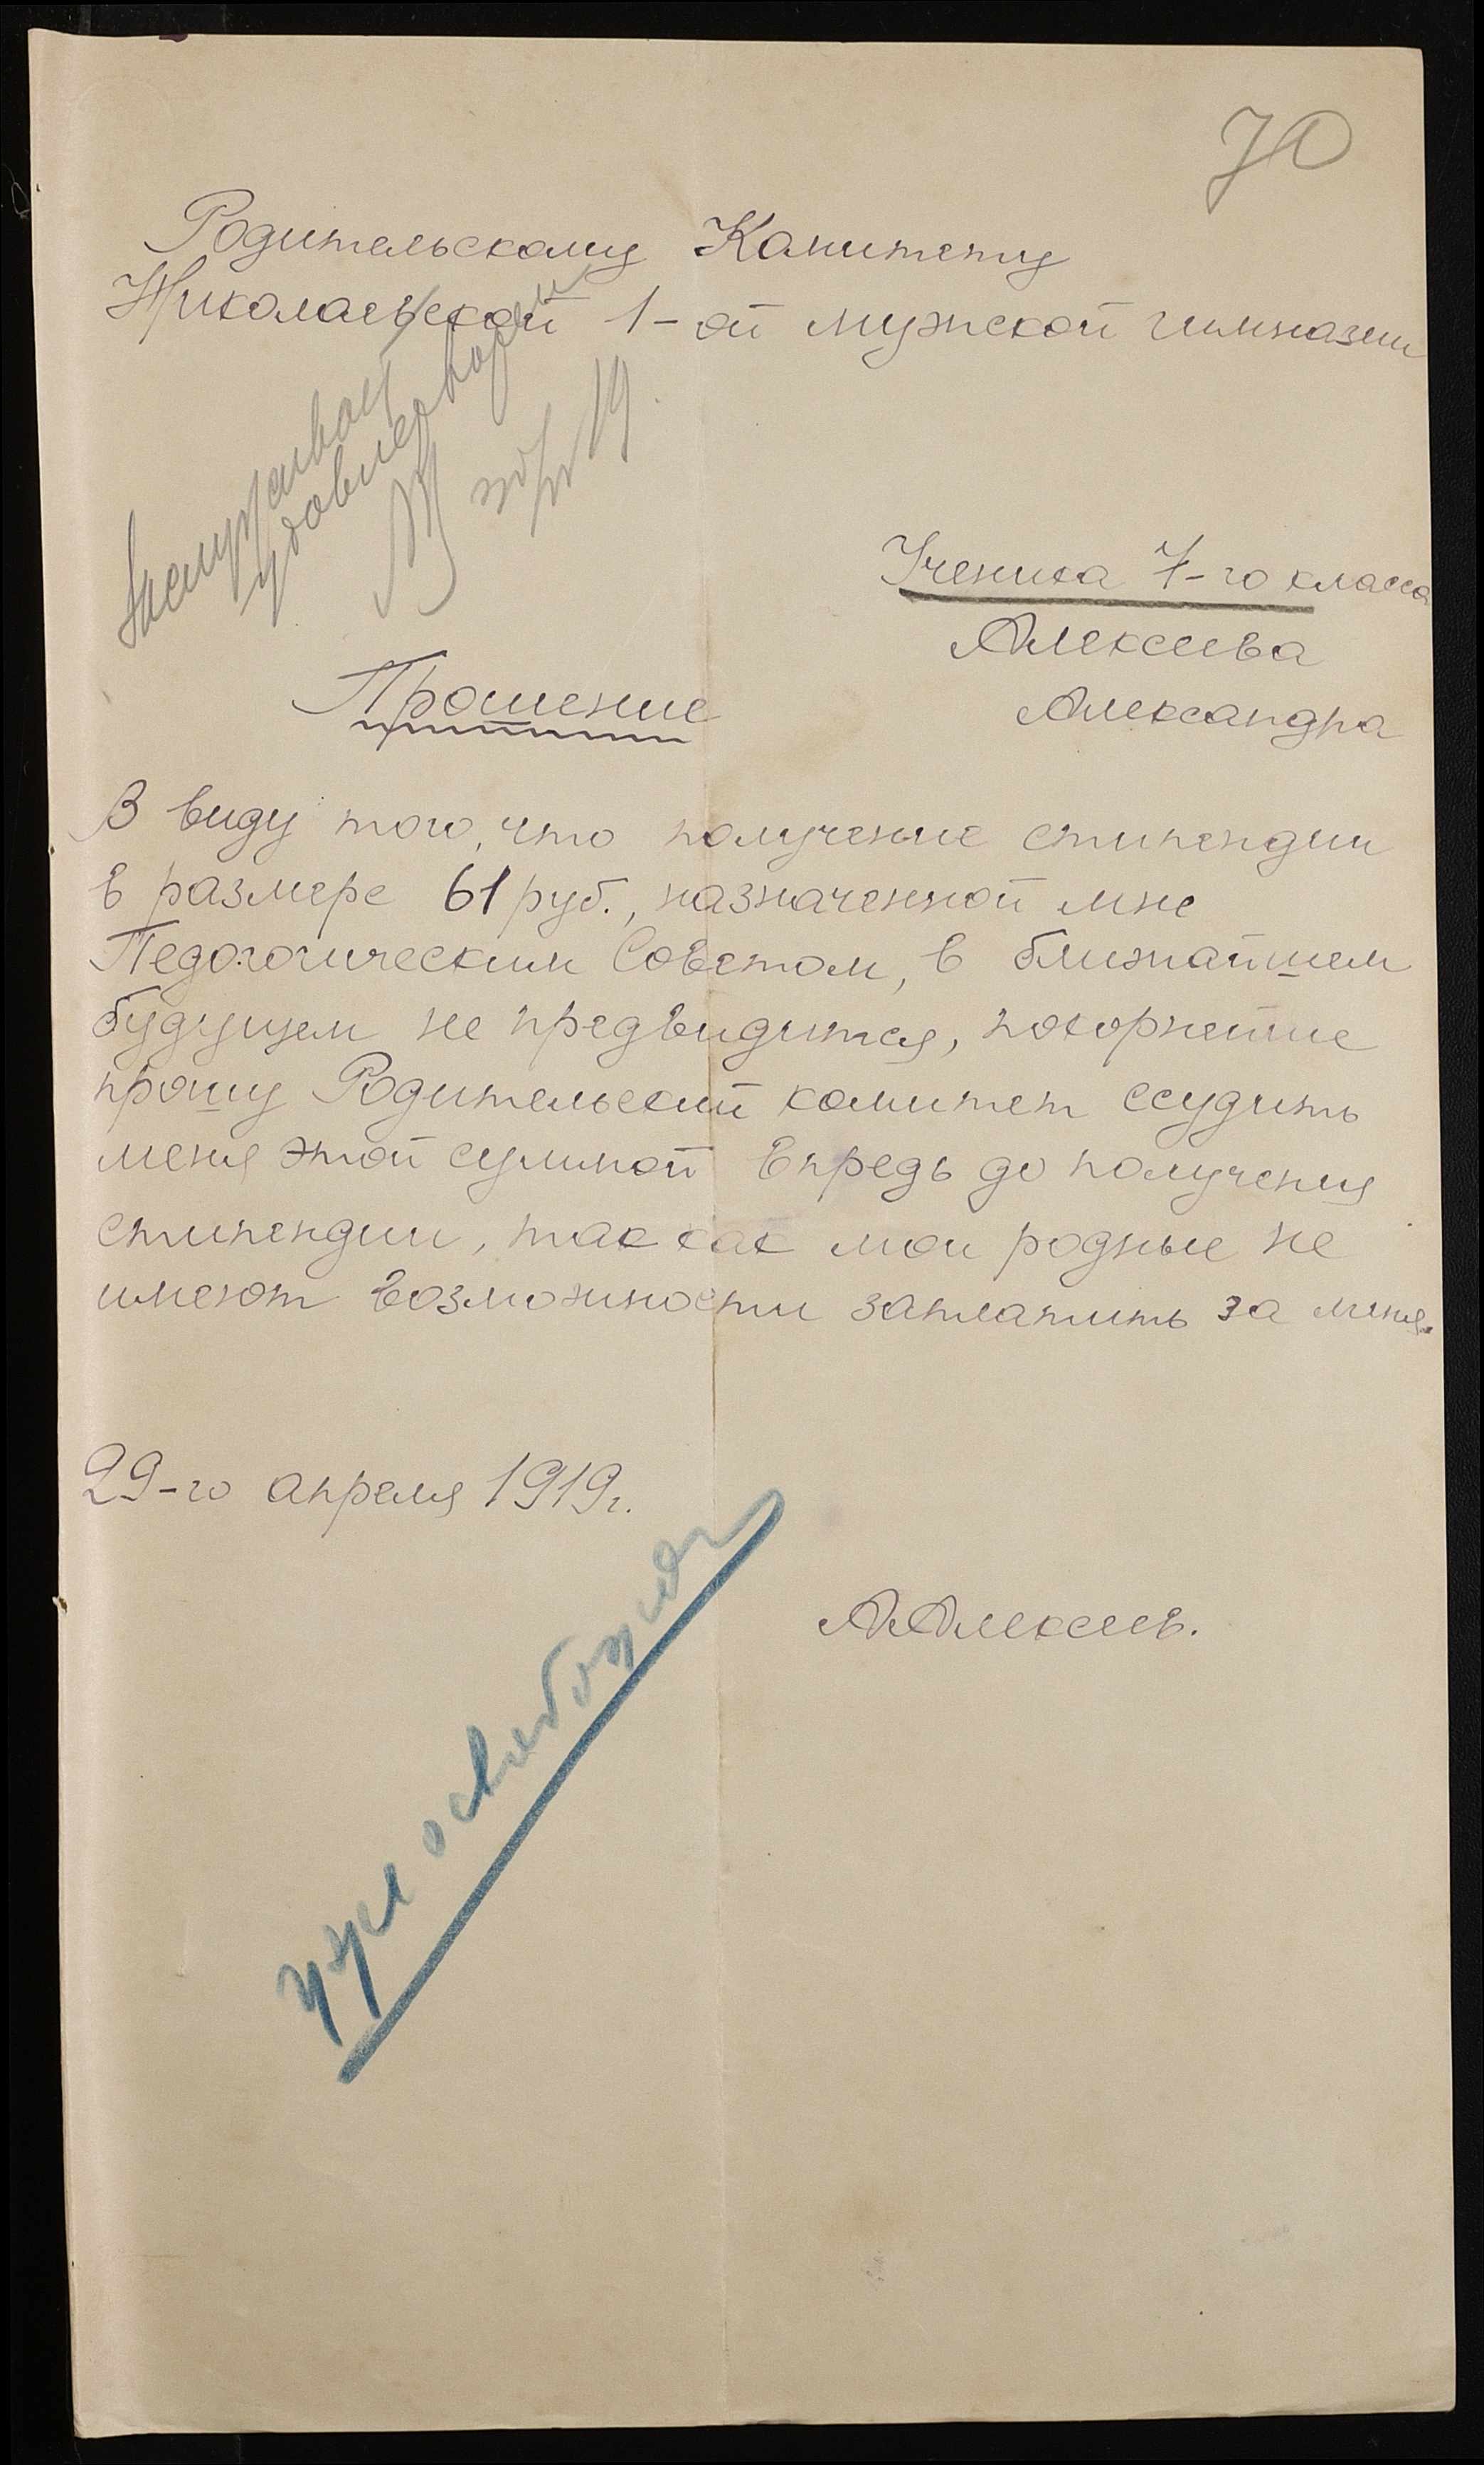 70
Родительскому Комитету
Николаевской 1-ой мужской гимназии
Заслуживает
удовлетворения
19
Ученика 7-го класса
Алексеева
Александра
Прошение
В виду того, что получение стипендии
в размере 61 руб., назначенной мне
Педогогическим Советом, в ближайшем
будущем не предвидится, покорнейше
прошу Родительский комитет ссудить
меня этой суммой впредь до получения
стипендии, так как мои родные не
имеют возможности заплатить за меня.
29-го апреля 1919 г.
А. Алексеев.
уже освобожден